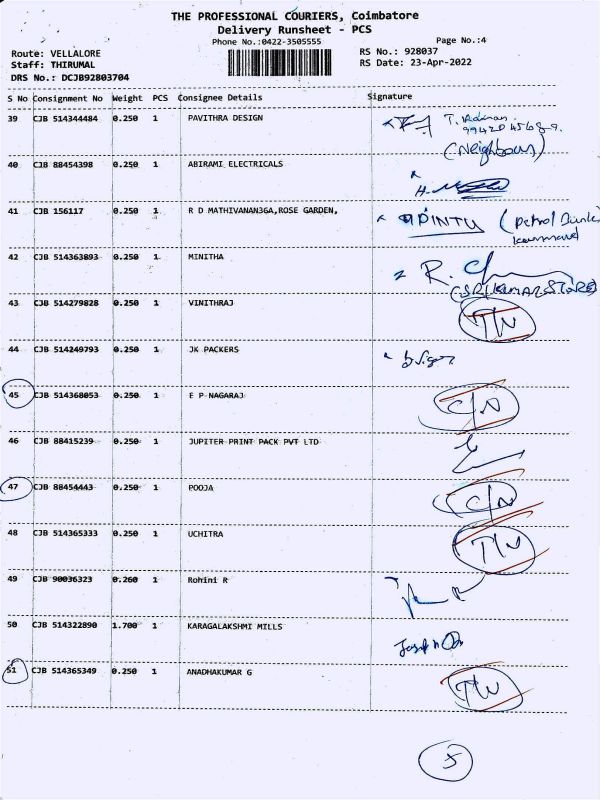 THE PROFESSIONAL COURIERS, Coimbatore
Delivery Runsheet - PCS
Phone No.:0422-3505555
Page No.:4
Route: VELLALORE
RS No.: 928037
Staff: THIRUMAL
RS Date: 23-Apr-2022
DRS No.: DCJB92803704
S No Consignment No Weight PCS Consignee Details Signature
39 CJB 514344484 0.250 1 PAVITHRA DESIGN
(Neighbour)
40 CJB 88454398 0.250 1 ABIRAMI ELECTRICALS
41 CJB 156117 0.250 1 R D MATHIVANAN36A,ROSE GARDEN, PINTU (Petrol Bunk
42 CJB 514363893 0.250 1 MINITHA
(SRI KUMAR STORE)
43 CJB 514279828 0.250 1 VINITHRAJ T/N
44 CJB 514249793 0.250 1 JK PACKERS
45 CJB 514368053 0.250 1 E P NAGARAJ C/N
46 CJB 88415239 0.250 1 JUPITER PRINT PACK PVT LTD
47 CJB 88454443 0.250 1 POOJA C/N
48 CJB 514365333 0.250 1 UCHITRA T/N
49 CJB 90036323 0.260 1 Rohini R
50 CJB 514322890 1.700 1 KARAGALAKSHMI MILLS
51 CJB 514365349 0.250 1 ANADHAKUMAR G T/N
5